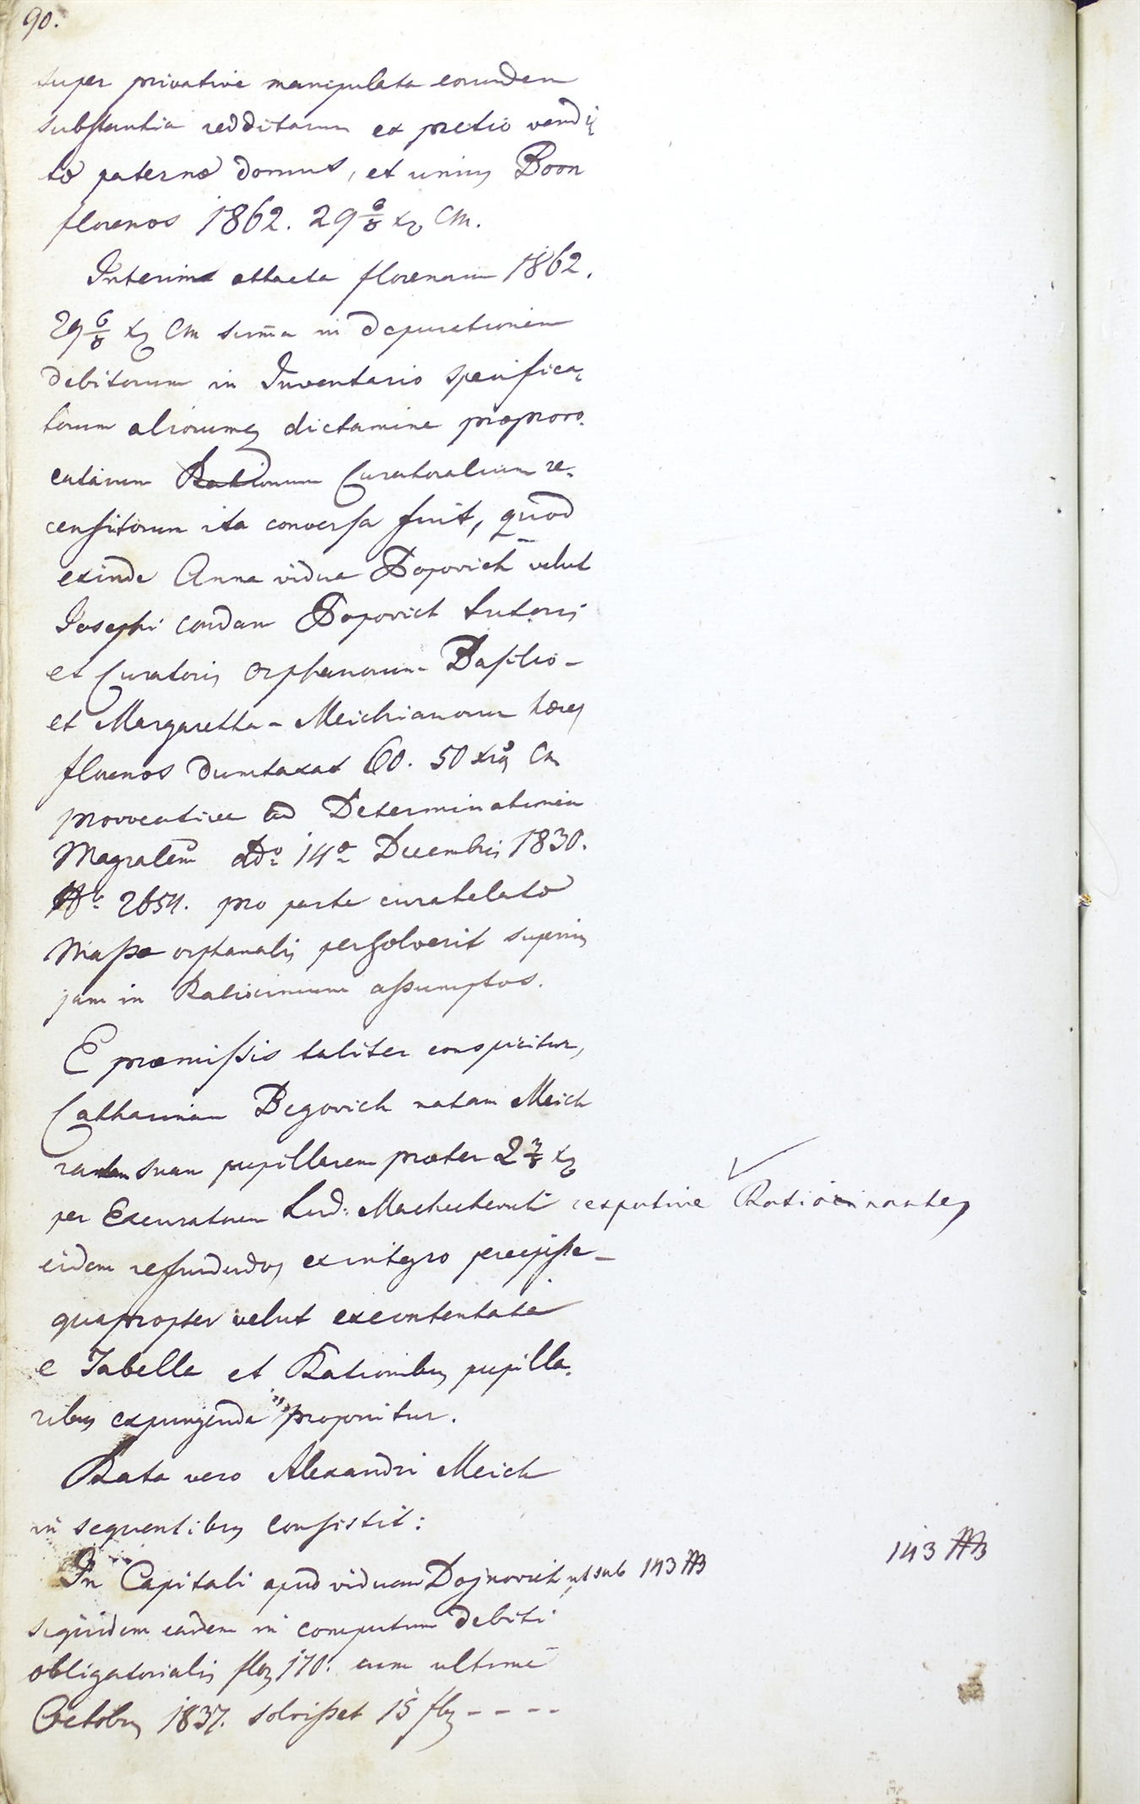 90.
super privative manipulata eorundem
substantia redditarum ex pretio vendi
tae paternae domus, et unius Boon
florenos 1862. 29 6/8 xr CM.
Interim attacta florenorum 1862.
29 6/8 xr CM sum̄a in depurationem
debitorum in Inventario specifica
torum aliorumq dictamine praeprovo.
catarum Rationum Curatoralium re.
censitorum ita conversa fuit, quod
exinde Anna vidua Popovich velut
Josephi condam Popovich Tutoris
et Curatoris orphanorum Basilio-
et Margaretha - Meichianorum haeres
florenos dumtaxat 60. 50 xros CM
provocative ad Determinationem
Magralem ddo 14a Decembris 1830.
No 2654. pro parte curatelatae
Massae orphanalis persolverit superius
jam in Ratiocinium assumptos.
E praemissis taliter conspicitur,
Catharinam Begovich natam Meich
ratam suam pupillarem praeter 2 3/8 xr
per Excuratorem Lud: respective Ratiocinantes
eidem refundendos ex integro percepisse -
quapropter velut excontentata
e Tabella et Rationibus pupilla.
ribus expungenda proponitur.
Rata vero Alexandri Meich
in sequentibus consistit:
In Capitali apud viduam Dojnovich ut sub 143 143
siquidem eadem in computum debiti
obligatorialis flor 170. cum ultima
Octobris 1837. solvisset 15 fl - - - -